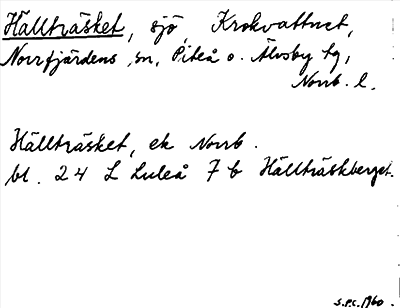 Hällträsket, sjö, Krokvattnet,
Norrfjärdens sn, Piteå o. Älvsby tg,
Norrb. l.
Hällträsket, ek Norrb.
bl. 24 L Luleå 7 b Hällträskberget.
S.P.C. 1960.